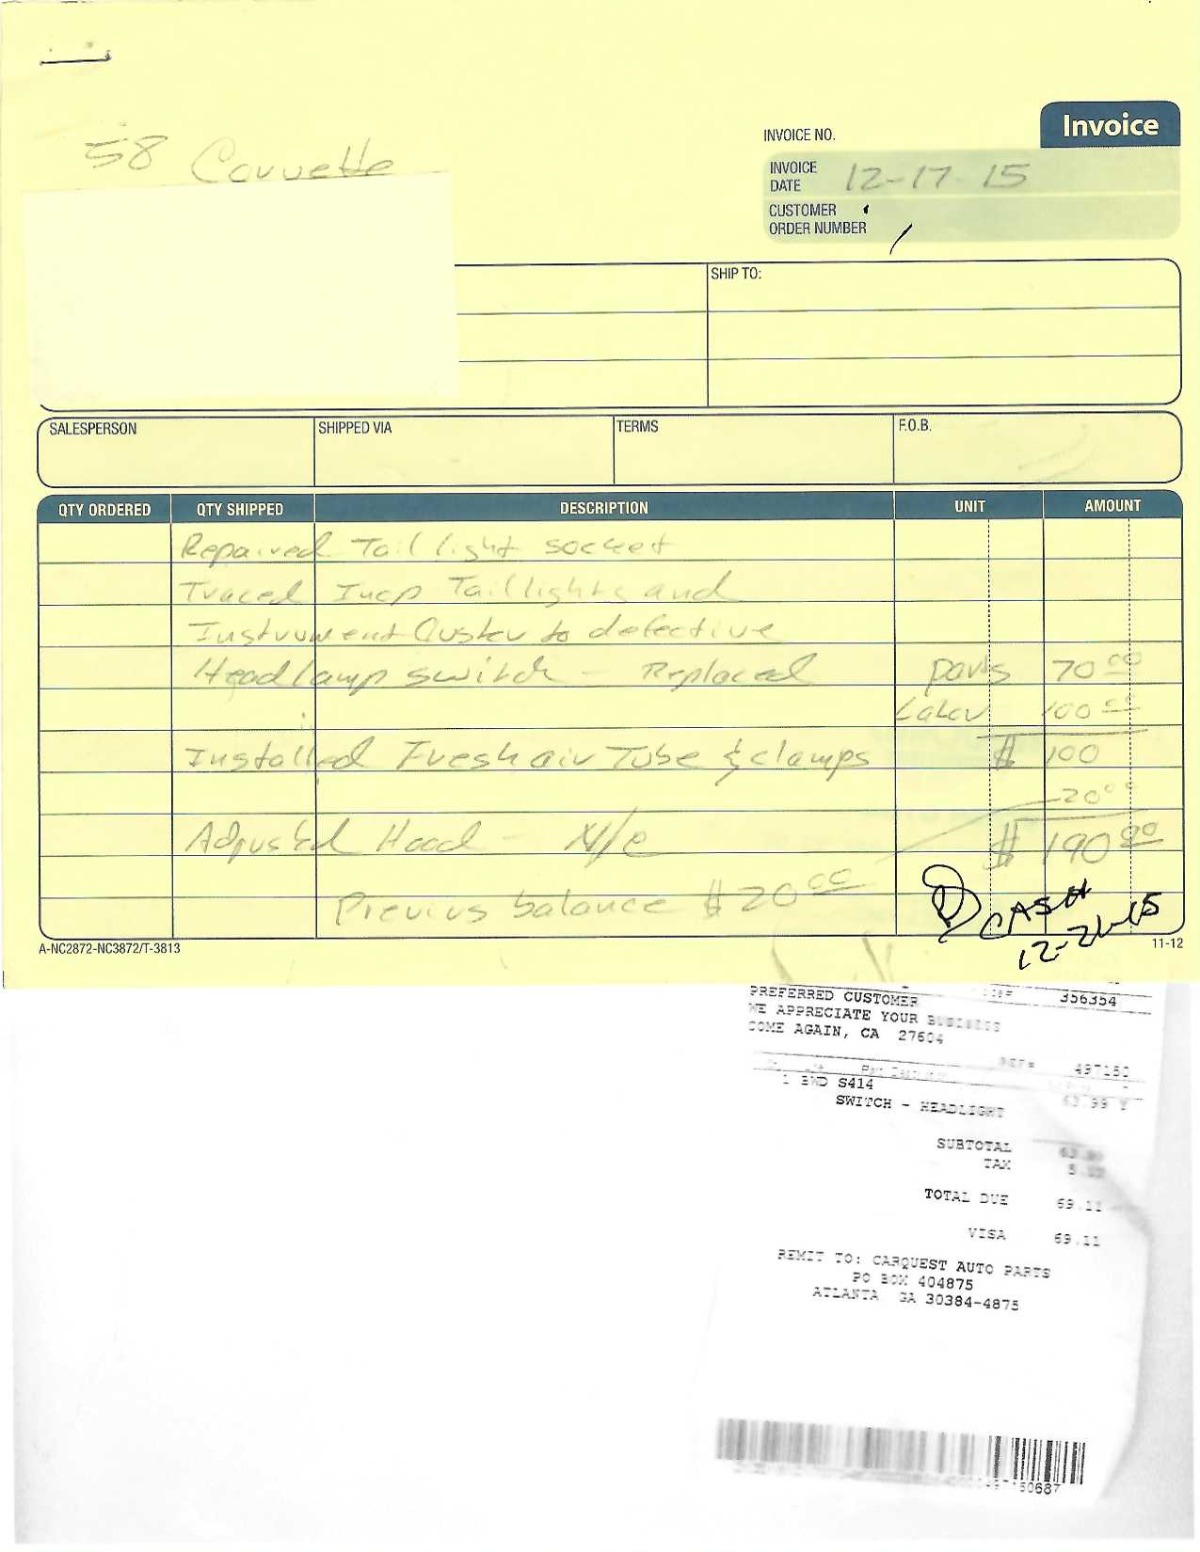 58 Corvette
Invoice
INVOICE NO.
INVOICE DATE 12-17-15
CUSTOMER ORDER NUMBER
SHIP TO:
SALESPERSON SHIPPED VIA TERMS F.O.B.
QTY ORDERED QTY SHIPPED DESCRIPTION UNIT AMOUNT
Repaired Tail light socket
Traced Inop Taillights and
Instrument Cluster to defective
Headlamp switch - Replaced parts 70 00
Labor 100 00
Installed Fresh air Tube & clamps $ 100
20 00
Adjusted Hood - N/C $ 190 00
Previus balance $ 20 00
CASH
12-21-15
A-NC2872-NC3872/T-3813 11-12
PREFERRED CUSTOMER 356354
WE APPRECIATE YOUR BUSINESS
COME AGAIN, CA 27604
REF# 497150
1 BWD S414
SWITCH - HEADLIGHT 63.99 Y
SUBTOTAL 63.99
TAX
TOTAL DUE 69.11
VISA 69.11
REMIT TO: CARQUEST AUTO PARTS
PO BOX 404875
ATLANTA GA 30384-4875